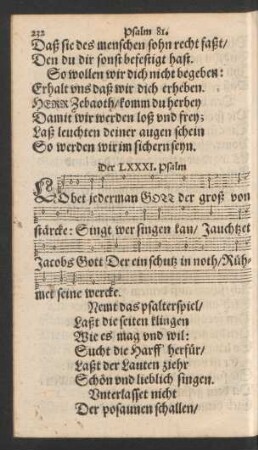 232 Psalm 81.
Daß sie des menschen sohn recht faßt/
Den du dir sonst befestigt hast.
So wollen wir dich nicht begeben:
Erhalt vns daß wir dich erheben.
HERR Zebaoth/ komm du herbey
Damit wir werden loß vnd frey;
Laß leuchten deiner augen schein
So werden wir im sichern seyn.
Der LXXXI. Psalm
LObet jederman GOTT der groß von
stärcke: Singt wer singen kan/ Jauchtzet
Jacobs Gott Der ein schutz in noth/ Rüh-
met seine wercke.
Nemt das psalterspiel/
Laßt die seiten klingen
Wie es mag vnd wil:
Sucht die Harff' herfür/
Laßt der Lauten ziehr
Schön vnd lieblich singen.
Vnterlasset nicht
Der posaunen schallen/